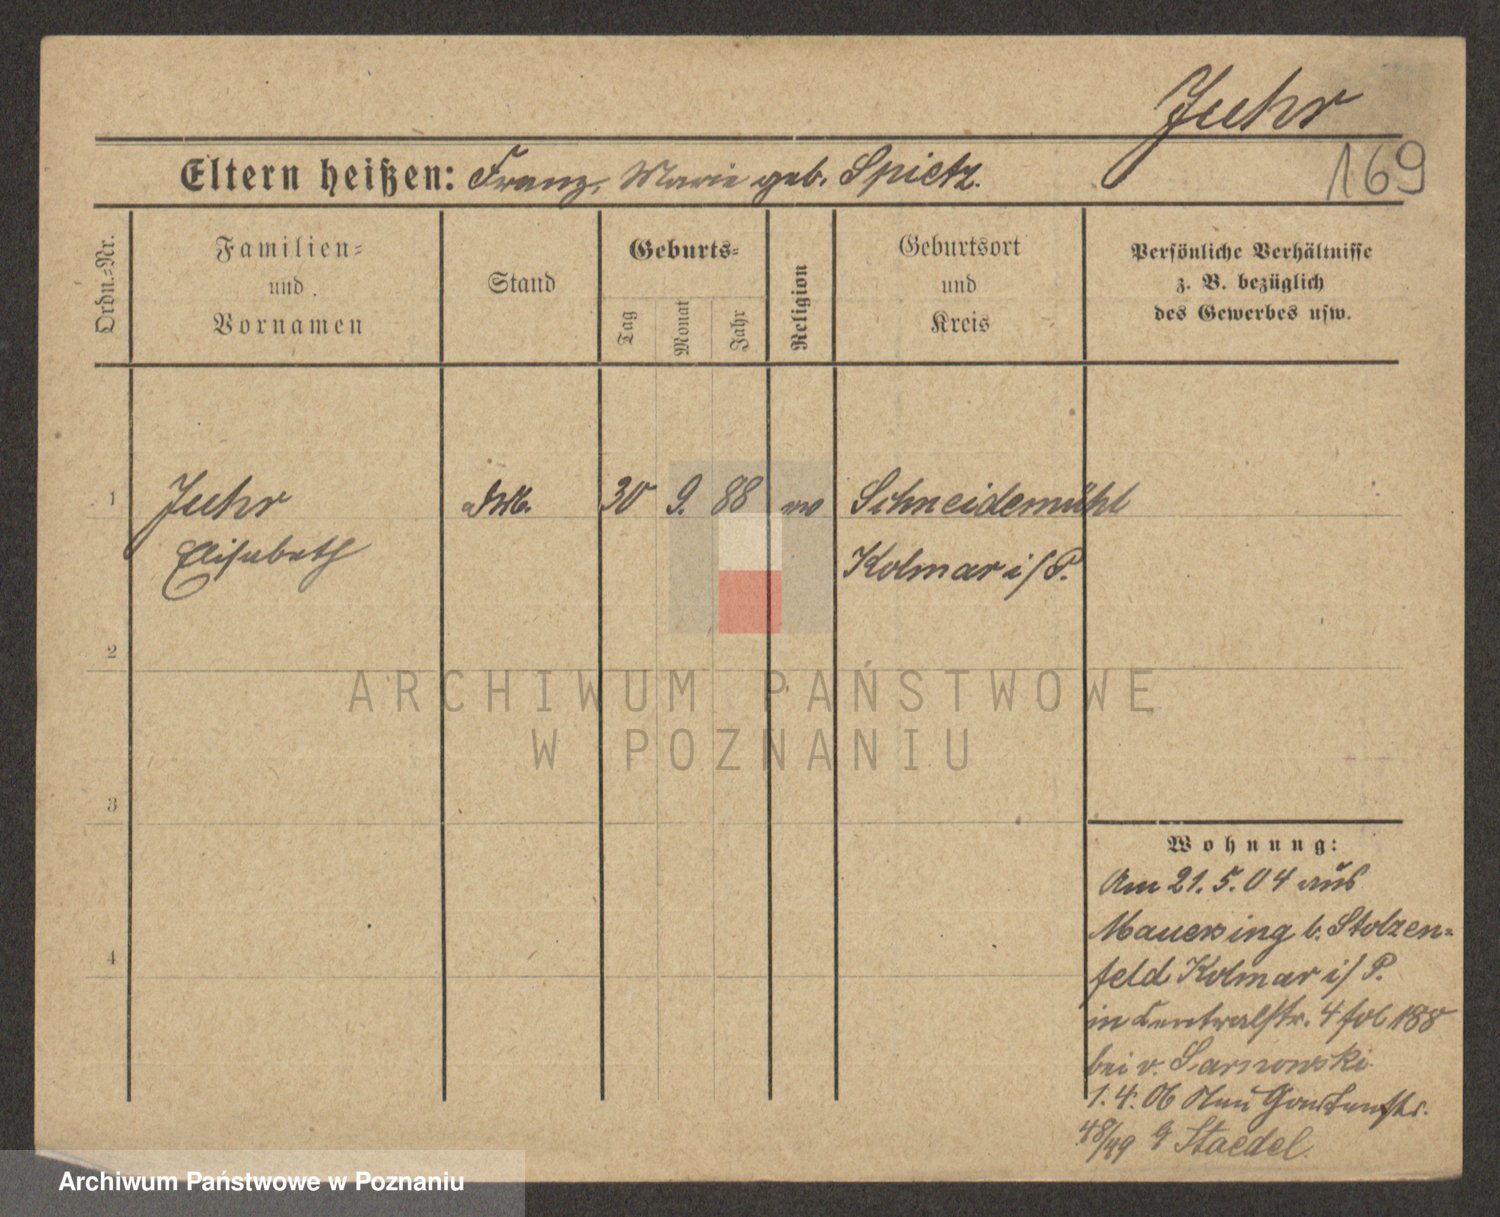 Juhr
169
Eltern heißen: Franz, Marie geb. Spietz.
Ordn.-Nr.
Familien-
und
Vornamen
Stand
Geburts-
Tag
Monat
Jahr
Religion
Geburtsort
und
Kreis
Persönliche Verhältnisse
z. B. bezüglich
des Gewerbes usw.
1
Juhr
Elisabeth
30
9.
88
Schneidemühl
Kolmar i/P.
2
3
4
ARCHIWUM PAŃSTWOWE
W POZNANIU
Wohnung:
Am 21.5.04 aus
b. Stolzen-
feld Kolmar i/P.
in Centralstr. 4 fol 188
bei v. Sarnowski
1.4.06 Neu Gartenstr.
48/49 Staedel.
Archiwum Państwowe w Poznaniu